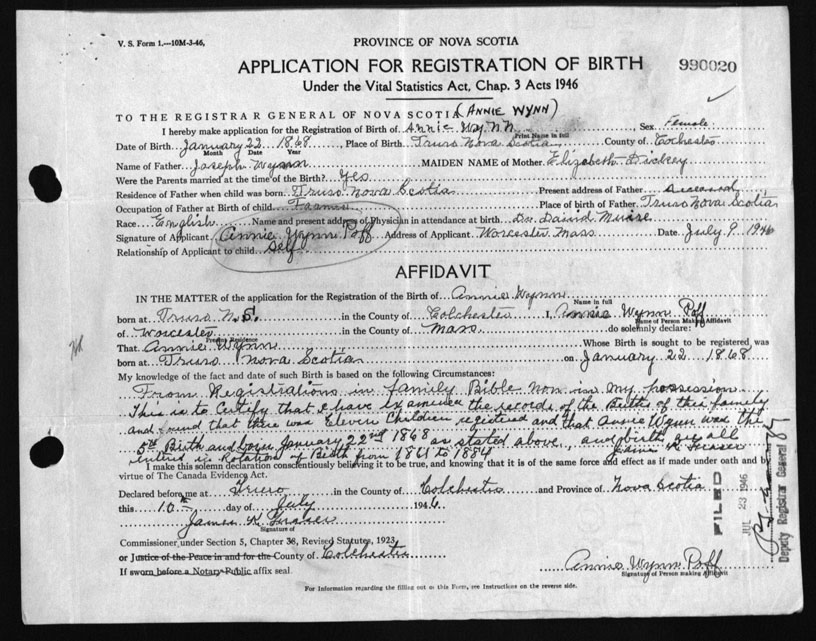 V. S. Form 1.—10M-3-46,
PROVINCE OF NOVA SCOTIA
APPLICATION FOR REGISTRATION OF BIRTH
990020
Under the Vital Statistics Act, Chap. 3 Acts 1946
TO THE REGISTRAR GENERAL OF NOVA SCOTIA (ANNIE WYNN)
I hereby make application for the Registration of Birth of Annie Wynn Sex Female
Print Name in full
Date of Birth January 22 1868 Place of Birth Truro Nova Scotia County of Colchester
Month Date Year
Name of Father Joseph Wynn MAIDEN NAME of Mother Elizabeth Dickey
Were the Parents married at the time of the Birth? Yes
Residence of Father when child was born Truro Nova Scotia Present address of Father deceased
Occupation of Father at Birth of child Place of birth of Father Truro Nova Scotia
Race English Name and present address of Physician in attendance at birth Dr. David
Signature of Applicant Annie Wynn Poff Address of Applicant Worcester Mass Date July 9 1946
Relationship of Applicant to child Self
AFFIDAVIT
IN THE MATTER of the application for the Registration of Birth of Annie Wynn
Name in full
born at Truro N.S. in the County of Colchester I, Annie Wynn Poff
Name of Person Making Affidavit
of Worcester in the County of Mass do solemnly declare:
Present Residence
That Annie Wynn Whose Birth is sought to be registered was
born at Truro Nova Scotia on January 22 1868
My knowledge of the fact and date of such Birth is based on the following Circumstances:
From Registrations in family Bible now in my possession
This is to Certify that I have examined the records of the Births of this family
and found that there was Eleven Children registered and that Annie Wynn was the
5th Birth and born January 22nd 1868 as stated above, and birth for all
entries in Rotation of Birth from 1861 to 1884 James K Fraser
I make this solemn declaration conscientiously believing it to be true, and knowing that it is of the same force and effect as if made under oath and by
virtue of The Canada Evidence Act.
Declared before me at Truro in the County of Colchester and Province of Nova Scotia
this 10th day of July 1946
James K Fraser
Signature of
Commissioner under Section 5, Chapter 38, Revised Statutes, 1923
or Justice of the Peace in and for the County of Colchester
If sworn before a Notary Public affix seal.
Annie Wynn Poff
Signature of Person making Affidavit
For Information regarding the filling out of this Form, see Instructions on the reverse side.
FILED
JUL 23 1946
Deputy Registrar General